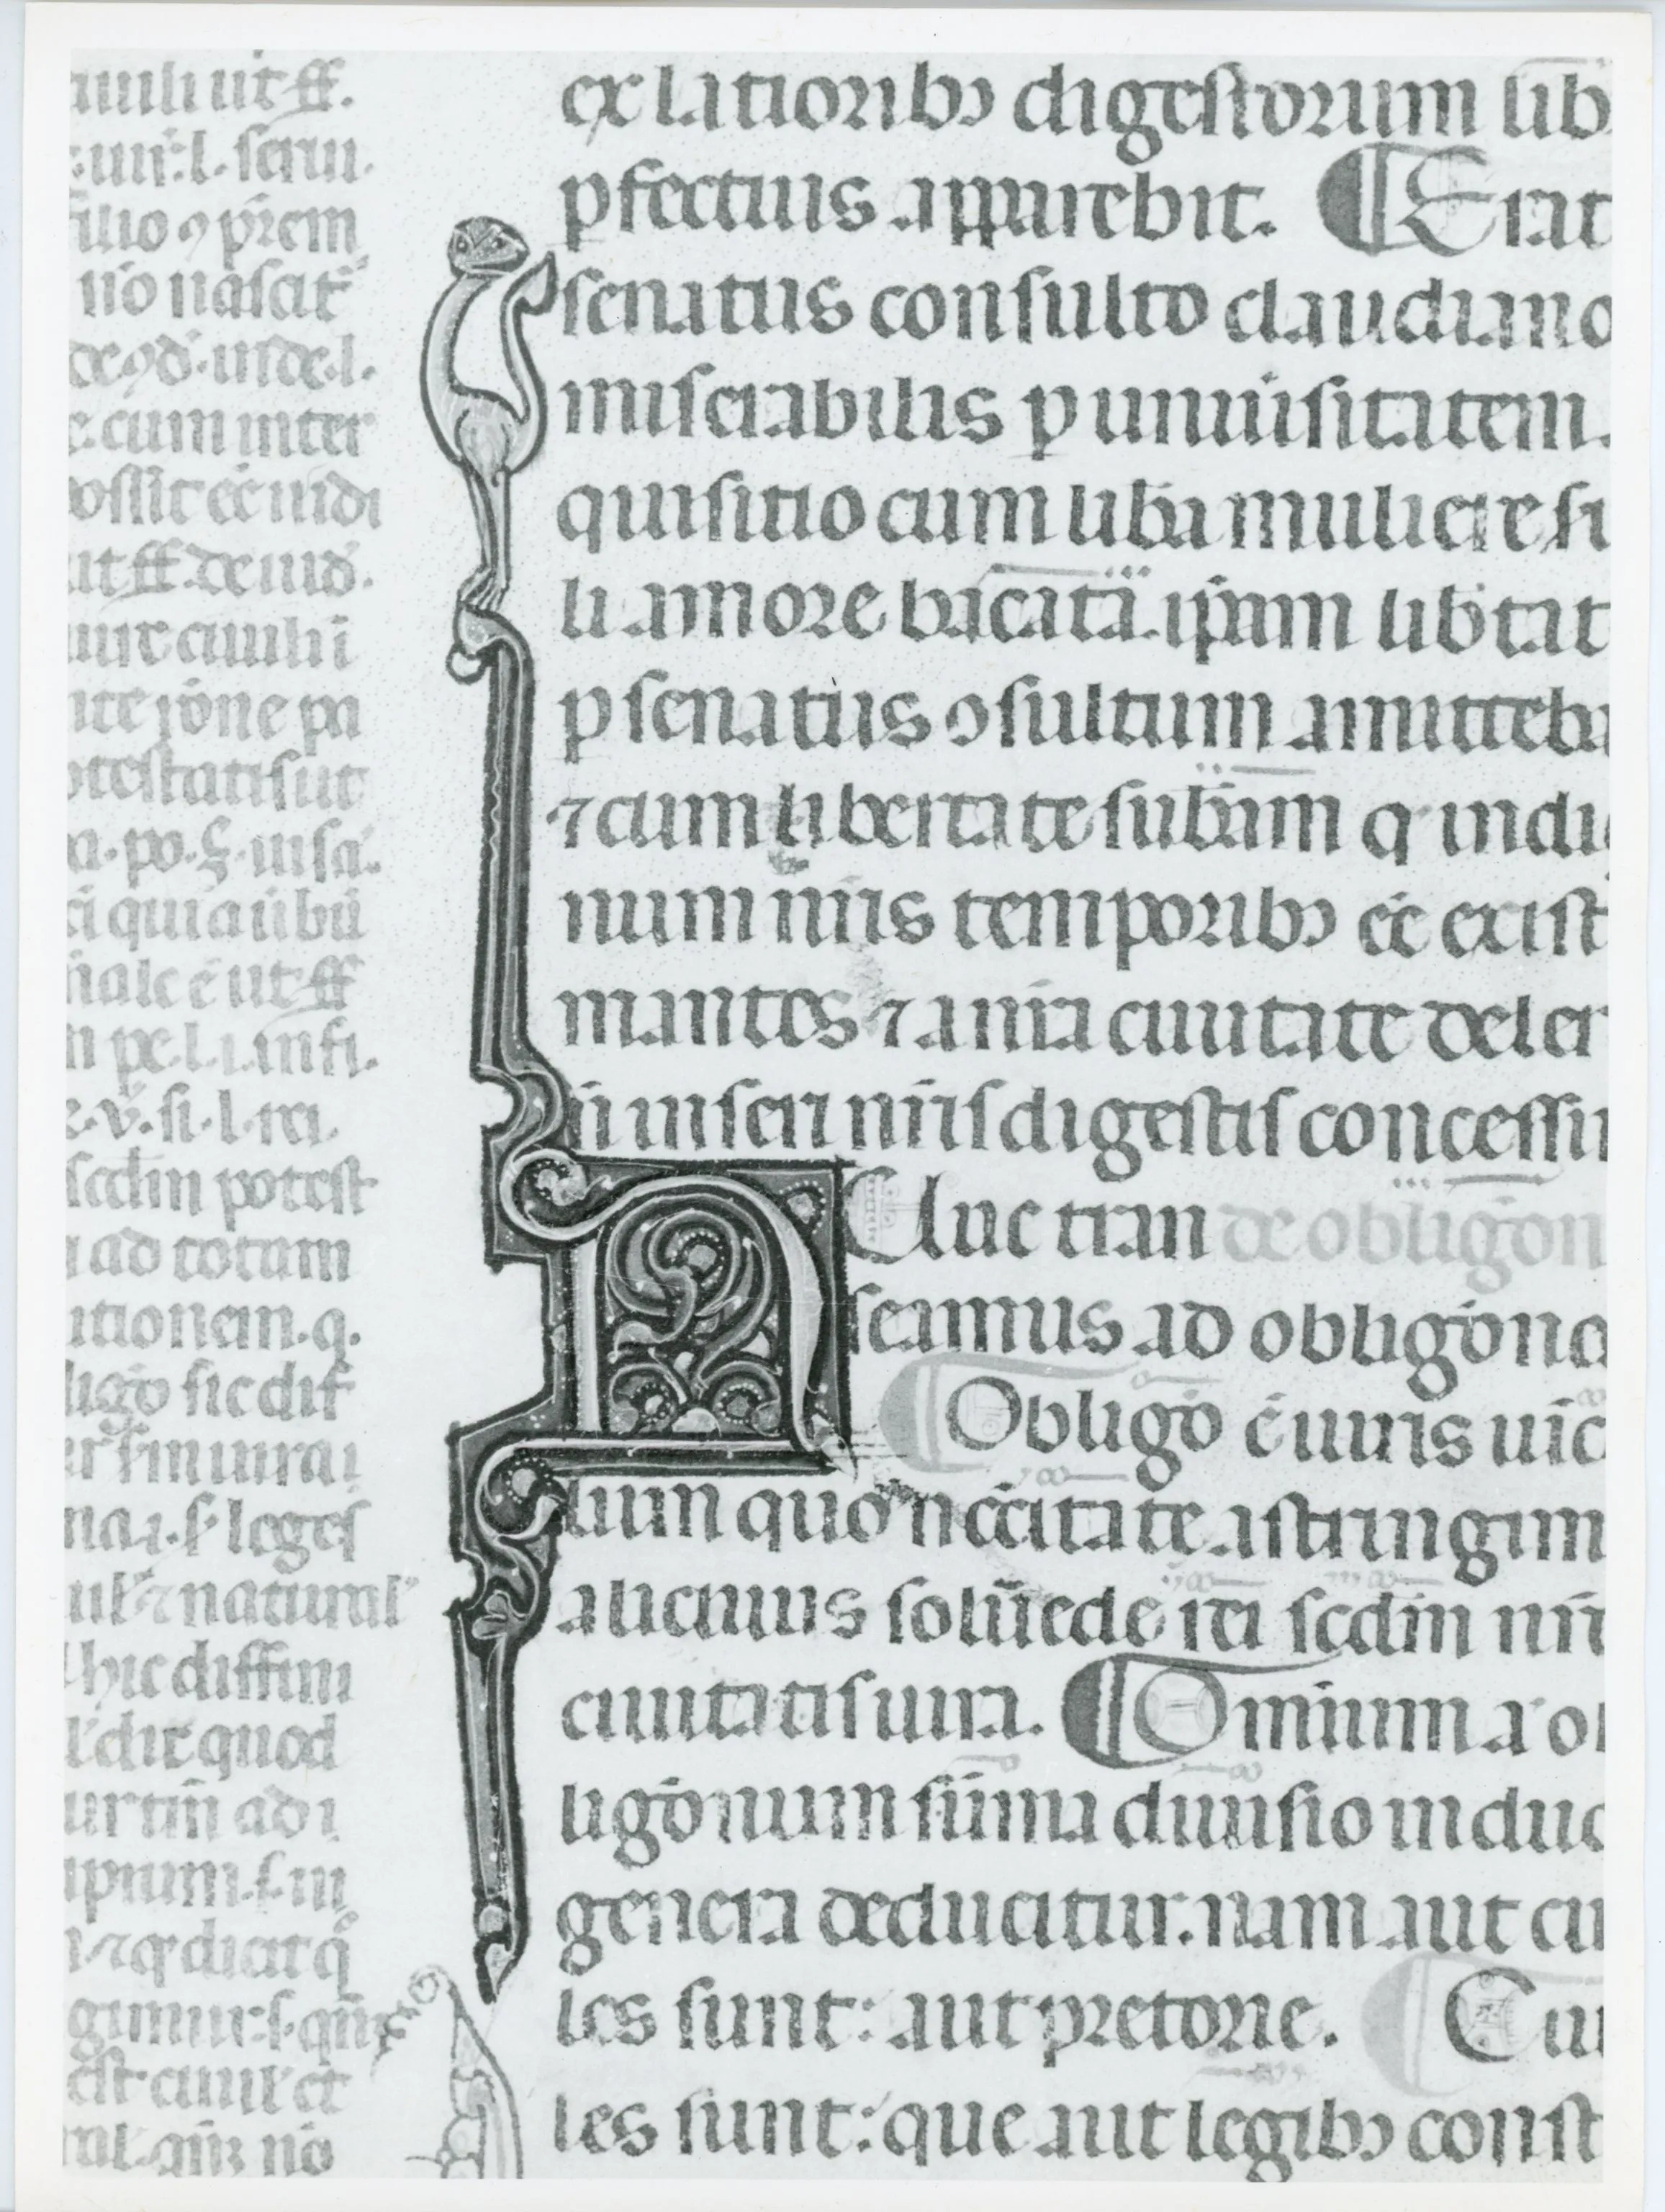 uiili ut ff.
.iiii. l. serui.
filio ꝯ prēm
nō nascat̄
de ꝯd. inde. l.
e. cum inter
possit eē iudi
ut ff. de iud.
uit ciuili
potestatis ut
a. po. §. ui sā.
ci quia ubi
nale ē ut ff
e. v̄. si. l. rei.
scdm potest
ad totum
utionem. q.
ligō sic dif
na. i. s. leges
ul' ⁊ natural'
hic diffini
l' dic̄ quod
ur tm̄ ad i
ipsum. s. iu
⁊ qd dicat q̄
gimur: s. qn̄
est ciuil' et
ex latioribꝯ digestorum lib
ꝑfectius apparebit. Erat
senatus consulto claudiano
miserabilis ꝑ uniuīsitatem.
quisitio cum libā muliere si
li amore bacata. ipam libtat
ꝑ senatus ꝯsultum amitteba
⁊ cum libertate subām q̄ indi
num nr̄is temporibꝯ eē exist
mantes ⁊ a nr̄a ciuitate deler
ii inseri nr̄is digestis concessi
Nunc tran de obligōn
seamus ad obligōne
Obligō ē iuris uīc
lum quo nccītate astringim
alicuius soluēde rei scdm nr̄
ciuitatis iura. Omnium aūt ob
ligōnum sūma diuisio in duo
genera deducitur. nam aut ciu
les sunt: aut pretorie. Ciu
les sunt: que aut legibꝯ const